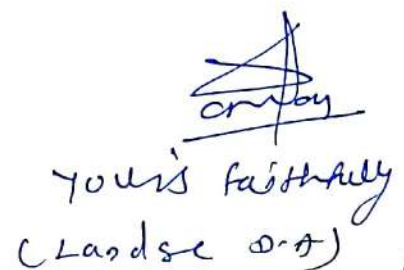 Yours faithfully
(Landse D.A)